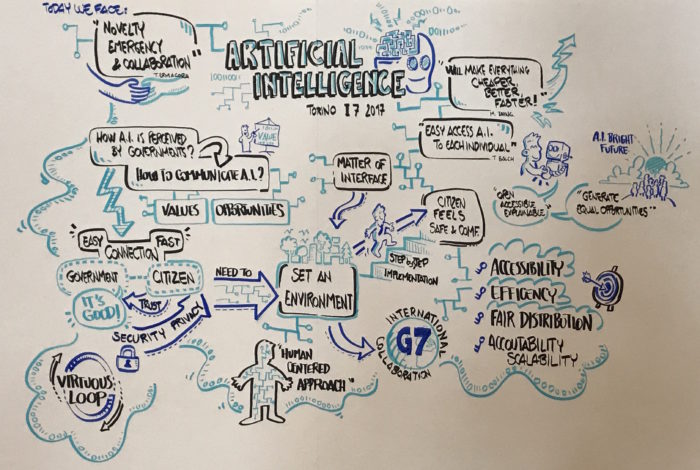 TODAY WE FACE:
"NOVELTY
EMERGENCY
& COLLABORATION"
ARTIFICIAL
INTELLIGENCE
TORINO I 7 2017
"WILL MAKE EVERYTHING
CHEAPER
BETTER,
FASTER!"
"EASY ACCESS A.I.
TO EACH INDIVIDUAL"
T. BALCH
A.I. BRIGHT
FUTURE
"OPEN
ACCESSIBLE
EXPLAINABLE"
"GENERATE
EQUAL OPPORTUNITIES"
HOW A.I. IS PERCEIVED
BY GOVERNMENTS?
HOW TO COMMUNICATE A.I.?
VALUE
VALUES
OPPORTUNITIES
MATTER OF
INTERFACE
CITIZEN
FEELS
SAFE & COMF.
STEP BY STEP
IMPLEMENTATION
EASY FAST
CONNECTION
GOVERNMENT
CITIZEN
IT'S
GOOD!
TRUST
SECURITY PRIVACY
NEED TO
SET AN
ENVIRONMENT
VIRTUOUS
LOOP
"HUMAN
CENTERED
APPROACH"
INTERNATIONAL
G7
COLLABORATION
ACCESSIBILITY
EFFICENCY
FAIR DISTRIBUTION
ACCOUTABILITY
SCALABILITY